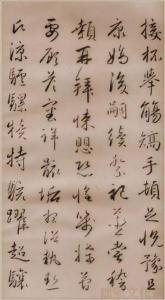 接杯舉觴矯手頓足悅豫且
康嫡後嗣續祭祀蒸嘗稽
顙再拜悚懼恐惶箋牒簡
要顧答審詳骸垢想浴執熱
願涼驢騾犢特駭躍超驤